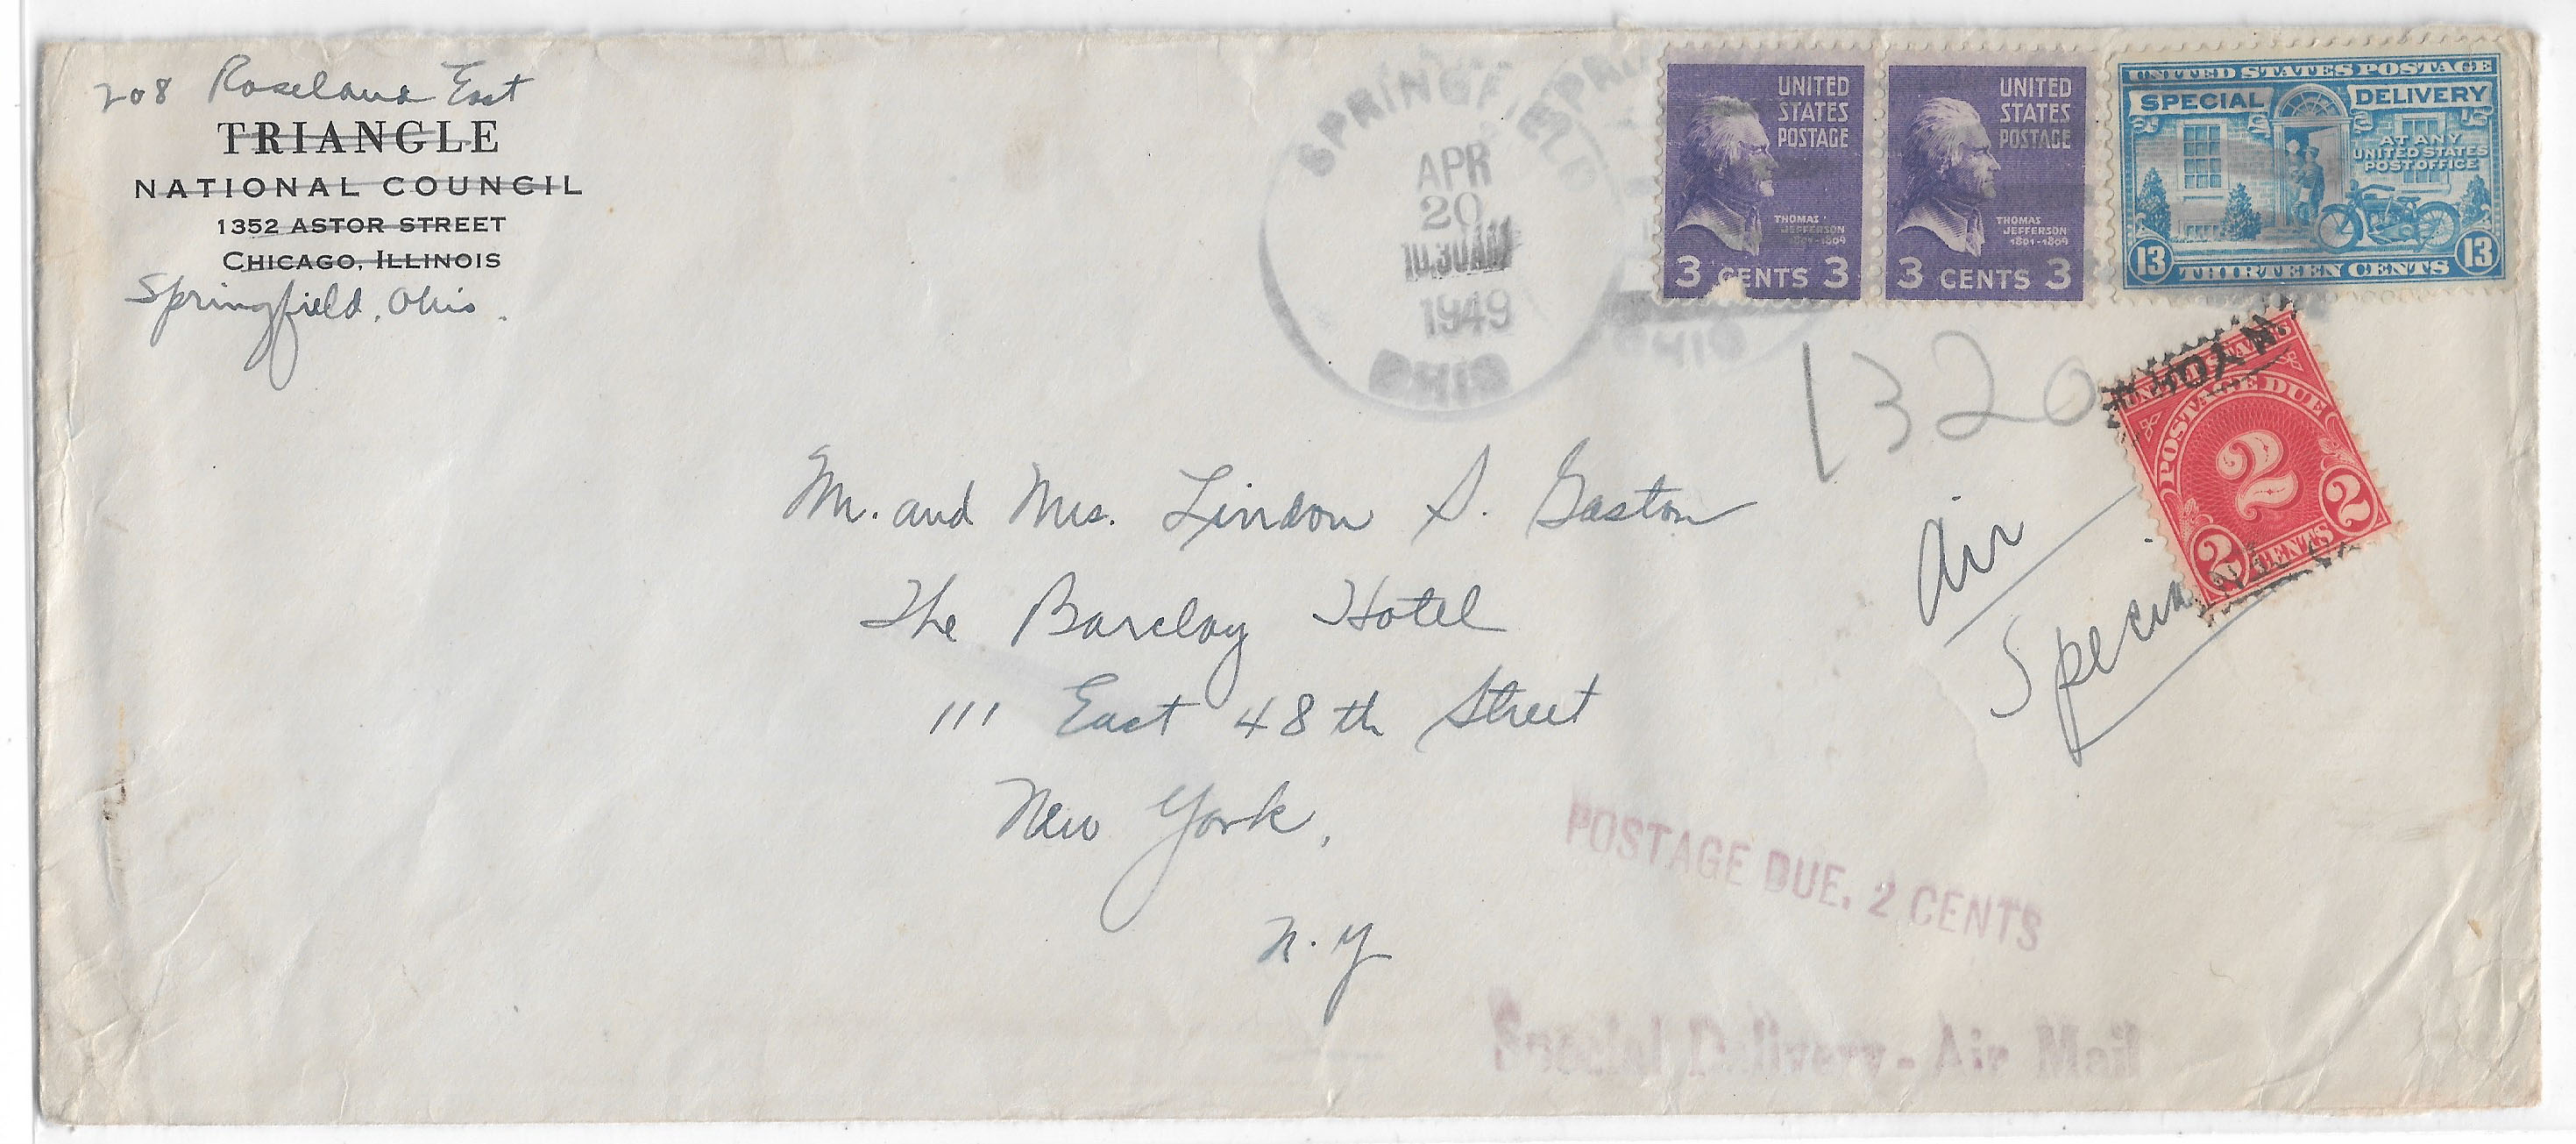 208 Roseland East
TRIANGLE
NATIONAL COUNCIL
1352 ASTOR STREET
CHICAGO, ILLINOIS
Springfield, Ohio.
SPRINGFIELD
APR
20
10:30 AM
1949
OHIO
OHIO
UNITED
STATES
POSTAGE
THOMAS
JEFFERSON
1801-1809
3 CENTS 3
UNITED
STATES
POSTAGE
THOMAS
JEFFERSON
1801-1809
3 CENTS 3
UNITED STATES POSTAGE
SPECIAL DELIVERY
AT ANY
UNITED STATES
POST OFFICE
13 THIRTEEN CENTS 13
1320
POSTAGE DUE
2
2 CENTS 2
Mr. and Mrs. Lindon S. Gaston
The Barclay Hotel
111 East 48th Street
New York,
N.Y
Air
Special
POSTAGE DUE. 2 CENTS
Special Delivery - Air Mail